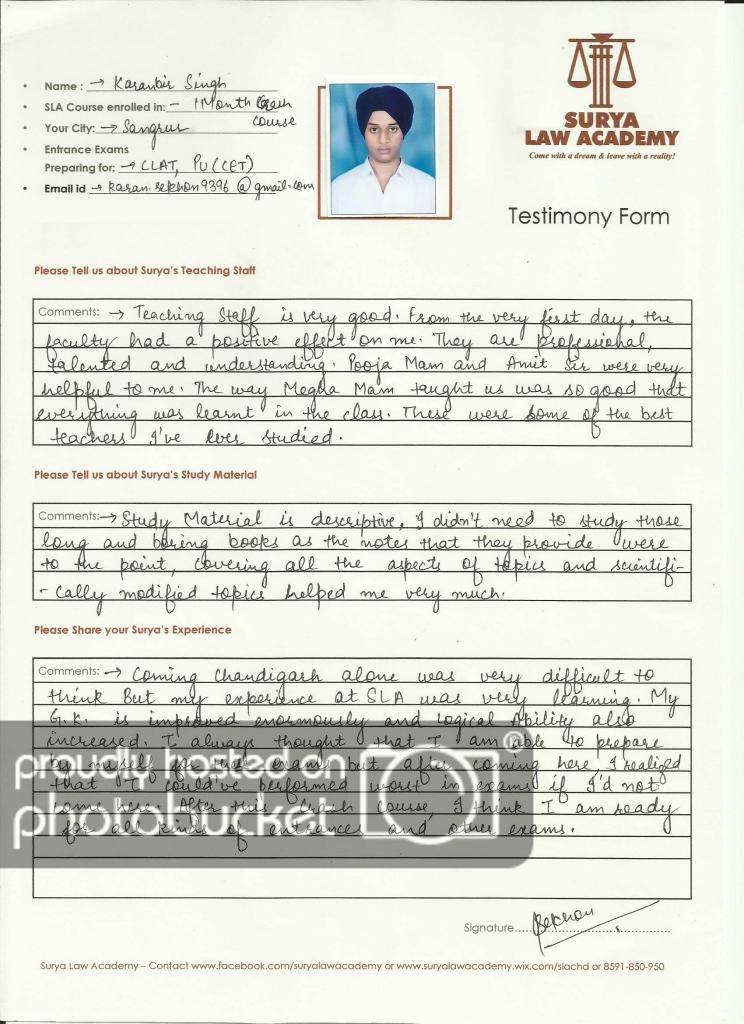 Name : → Karanbir Singh
SLA Course enrolled in: - 1 Month Crash
Course
Your City: → Sangrur
Entrance Exams
Preparing for: → CLAT, PU (CET)
Email id → karan.sekhon9396@gmail.com
SURYA
LAW ACADEMY
Come with a dream & leave with a reality!
Testimony Form
Please Tell us about Surya's Teaching Staff
Comments: → Teaching Staff is very good. From the very first day, the
faculty had a positive effect on me. They are professional,
talented and understanding. Pooja Mam and Amit Sir were very
helpful to me. The way Megha Mam taught us was so good that
everything was learnt in the class. These were some of the best
teachers I've ever studied.
Please Tell us about Surya's Study Material
Comments: → Study Material is descriptive, I didn't need to study those
long and boring books as the notes that they provide were
to the point, covering all the aspects of topics and scientifi-
- cally modified topics helped me very much.
Please Share your Surya's Experience
Comments: → Coming Chandigarh alone was very difficult to
think But my experience at SLA was very learning. My
G.K. is improved enormously and Logical Ability also
increased. I always thought that I am able to prepare
by myself for the exams but after coming here, I realized
that I could've performed worst in exams if I'd not
come here. After this Crash course, I think I am ready
for all kinds of entrances and other exams.
proudly hosted on
photobucket
Signature.....Sekhon
Surya Law Academy – Contact www.facebook.com/suryalawacademy or www.suryalawacademy.wix.com/slachd or 8591-850-950